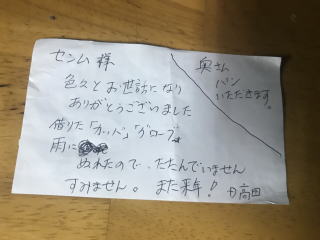 センム様
色々とお世話になり
ありがとうございました
借りた「カッパ」「グローブ」は
雨に
ぬれたので、たたんでいません
すみません。また来年!
日高田
奥さん
パン
いただきます。